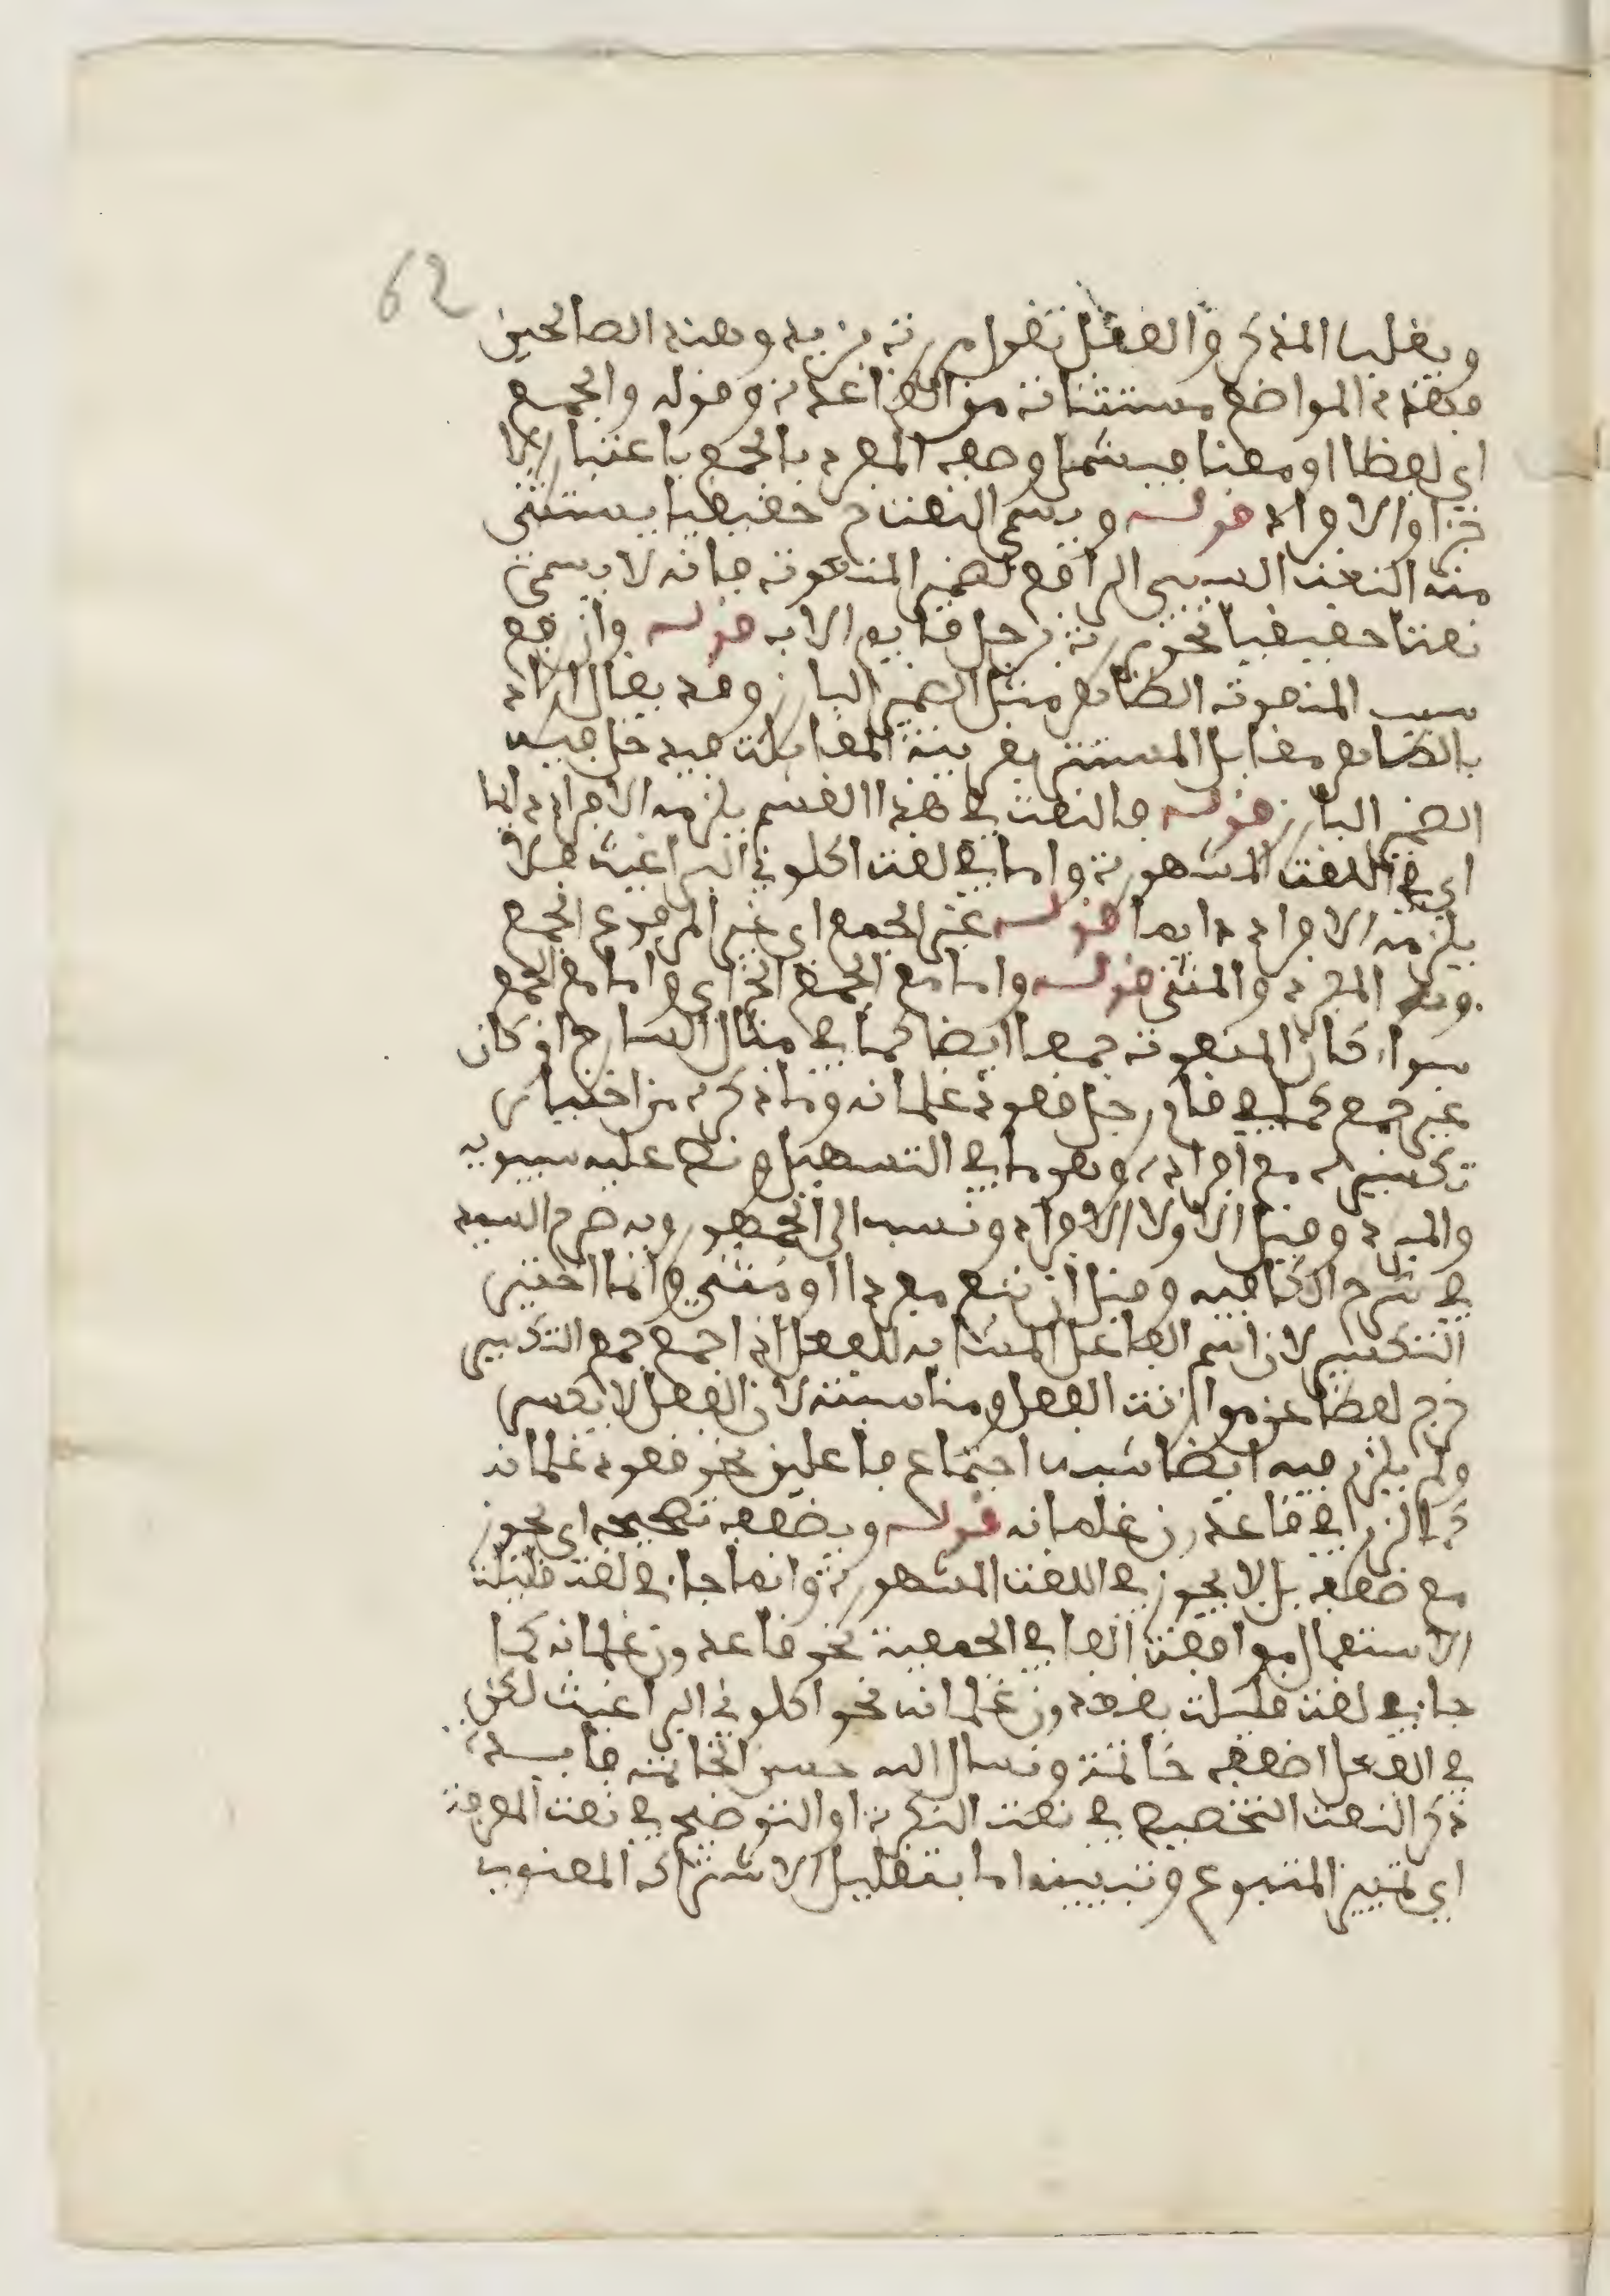 62
ويغلب المذكر والعقل تقول مررت بزيد وهند الصالحين
فهذه المواضع مستثناة من القاعدة وقوله والجمع
اي لفظا او معنا فيشمل وصف المفرد بالجمع باعتبار الا
جزا والافراد قوله ويسمى النعت حقيقيا يستثنى
منه النعت السببي الرافع لضمير المنعوت فانه لا يسمى
نعتا حقيقيا نحو مررت برجل قايم الاب قوله وان رفع
سبب المنعوت الظاهر مثل الضمير البارز وقد يقال اراد
بالظاهر مقابل المستتر بقرينة المقابلت فيدخل فيه
الضمير البارز قوله فالنعت في هذا القسم يلزمه الافراد دايما
اي في اللغت المشهورة واما في لغت اكلوني البراغيث فلا
يلزمه الافراد دايما قوله غير الجمع اي غير المرفوع الجمع
وهو المفرد والمثنى قوله واما مع الجمع الخ اي واما مع الجمع
سواء كان المنعوت جمعا ايضا كما في مثال الشارح او كان
غير جمع كما في جاء رجل قعود غلمانه وما ذكره من اختيار
تكسيره مع افراده وهو ما في التسهيل ونص عليه سيبويه
والمبرد وقيل الاولا الافراد ونسب الى الجمهور وبه صرح السيد
في شرح الكافيه وقيل ان تبع مفردا او مثنى وانما اختير
التكسير لان اسم الفاعل المشابه للفعل اذا جمع جمع التكسير
خرج لفظا عن موازنت الفعل ومناسبته لان الفعل لا يكسر
ولم يلزم فيه ايضا شبه اجتماع فاعلين نحو قعود غلمانه
كما لزم في قاعدون غلمانه قوله ويضعف تصحيحه اي يجوز
مع ضعف بل لا يجوز في اللغت المشهورة وانما جاء في لغت قليلت
الاستعمال موافقت الفا في الجمعية نحو قاعدون غلمانه كما
جاء في لغت قليلت يقعدون غلمانه نحو اكلوني البراغيث لكن
في الفعل اضعف خاتمة ونسال الله حسن الخاتمة فايدة
ذكر النعت التخصيص في نعت النكرة او التوضيح في نعت المعرفة
اي تمييز المتبوع وتبيينه اما بتقليل الاشتراك المعنوي